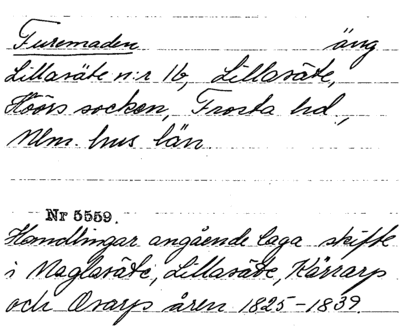 Furemaden äng
Lillasäte n:r 1b, Lillasäte,
Höörs socken, Frosta hd.,
Mlm. hus län.
Nr 5559.
Handlingar angående laga skifte
i Maglasäte, Lillasäte, Kärrarp
och Ovarp åren 1825-1839.